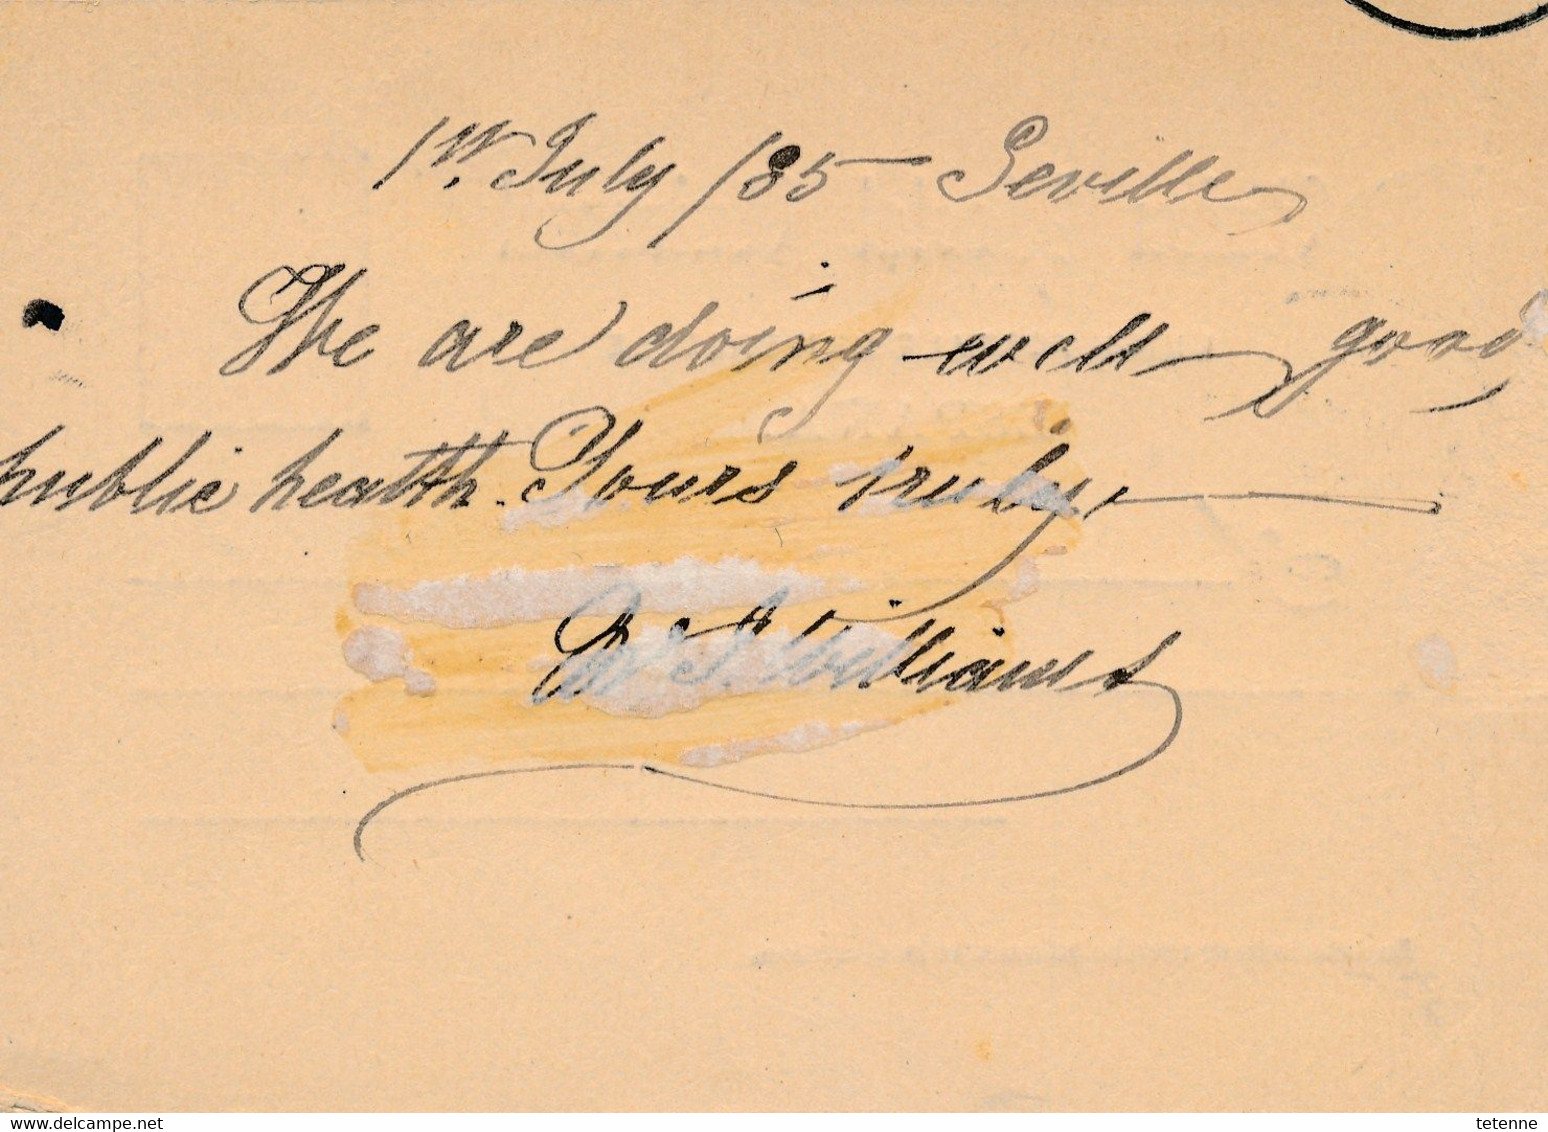 1st. July /85 — Seville
We are doing well good
public health. Yours truly,
Wm. S. Williams
delcampe.net
tetenne